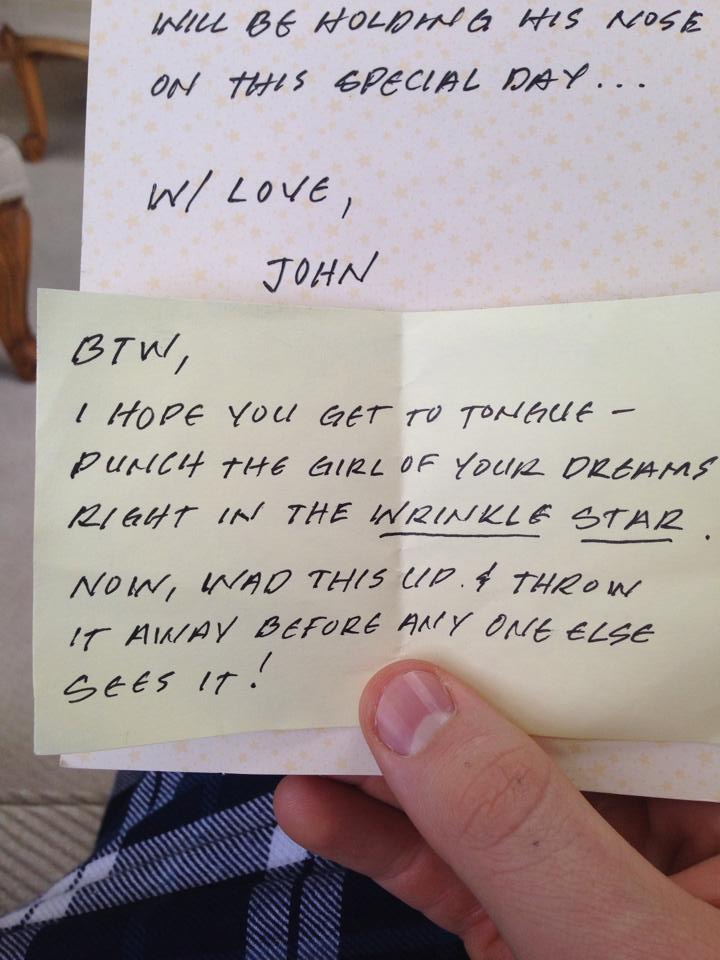 WILL BE HOLDING HIS NOSE
ON THIS SPECIAL DAY...
W/ LOVE,
JOHN
BTW,
I HOPE YOU GET TO TONGUE -
PUNCH THE GIRL OF YOUR DREAMS
RIGHT IN THE WRINKLE STAR.
NOW, WAD THIS UP & THROW
IT AWAY BEFORE ANY ONE ELSE
SEES IT!